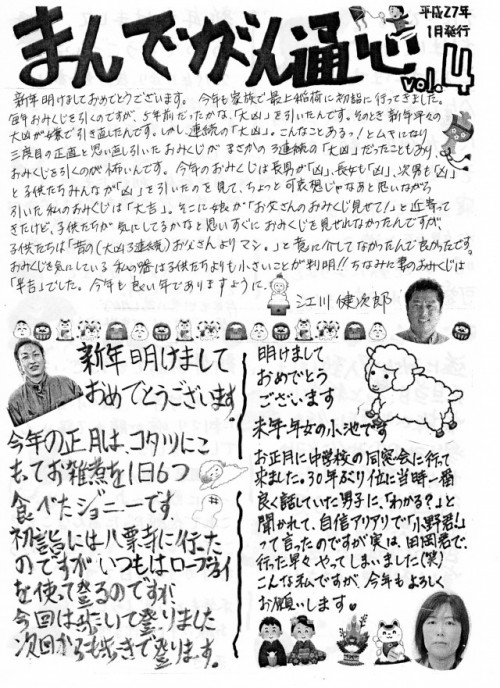 まんでがん通心
vol.4
平成27年
1月発行
新年明けましておめでとうございます。今年も家族で最上稲荷に初詣に行ってきました。
毎年おみくじを引くのですが、5年前だったかな、「大凶」を引いたんです。そのとき新年早々の
大凶が嫌で引き直したんです。しかし、2連続の「大凶」。こんなことあるっ!とムキになり
三度目の正直と思い直し引いたおみくじが まさかの3連続の「大凶」だったこともあり、
おみくじを引くのが怖いんです。今年のおみくじは長男が「凶」、長女も「凶」、次男も「凶」
と子供たちみんなが「凶」を引いたのを見て、ちょっと可哀想じゃなあと思いながら
引いた私のおみくじは「大吉」。そこに娘が「お父さんのおみくじ見せて!」と近寄って
きたけど、子供たちが気にしてるかなと思いすぐにおみくじを見せれなかったんですが、
子供たちは「昔の(大凶3連続)お父さんよりマシ。」と意に介してなかったんで良かったです。
おみくじを気にしている 私の器は子供たちよりも小さいことが判明!!ちなみに妻のおみくじは
「半吉」でした。今年も良い年でありますように、
江川 健次郎
新年明けまして
おめでとうございます
今年の正月は、コタツにこ
もってお雑煮を1日6つ
食べたジョニーです。
初詣には八栗寺に行った
のですが いつもはロープウェイ
を使って登るのですが
今回は歩いて登りました
次回からも歩きで登ります。
明けまして
おめでとう
ございます
未年年女の小池です
お正月に中学校の同窓会に行って
来ました。30年ぶり位に当時一番
良く話していた男子に、「わかる?」と
聞かれて、自信アリアリで「小野君!」
って言ったのですが実は、田岡君で、
行った早々やってしまいました(笑)
こんな私ですが、今年もよろしく
お願いします。